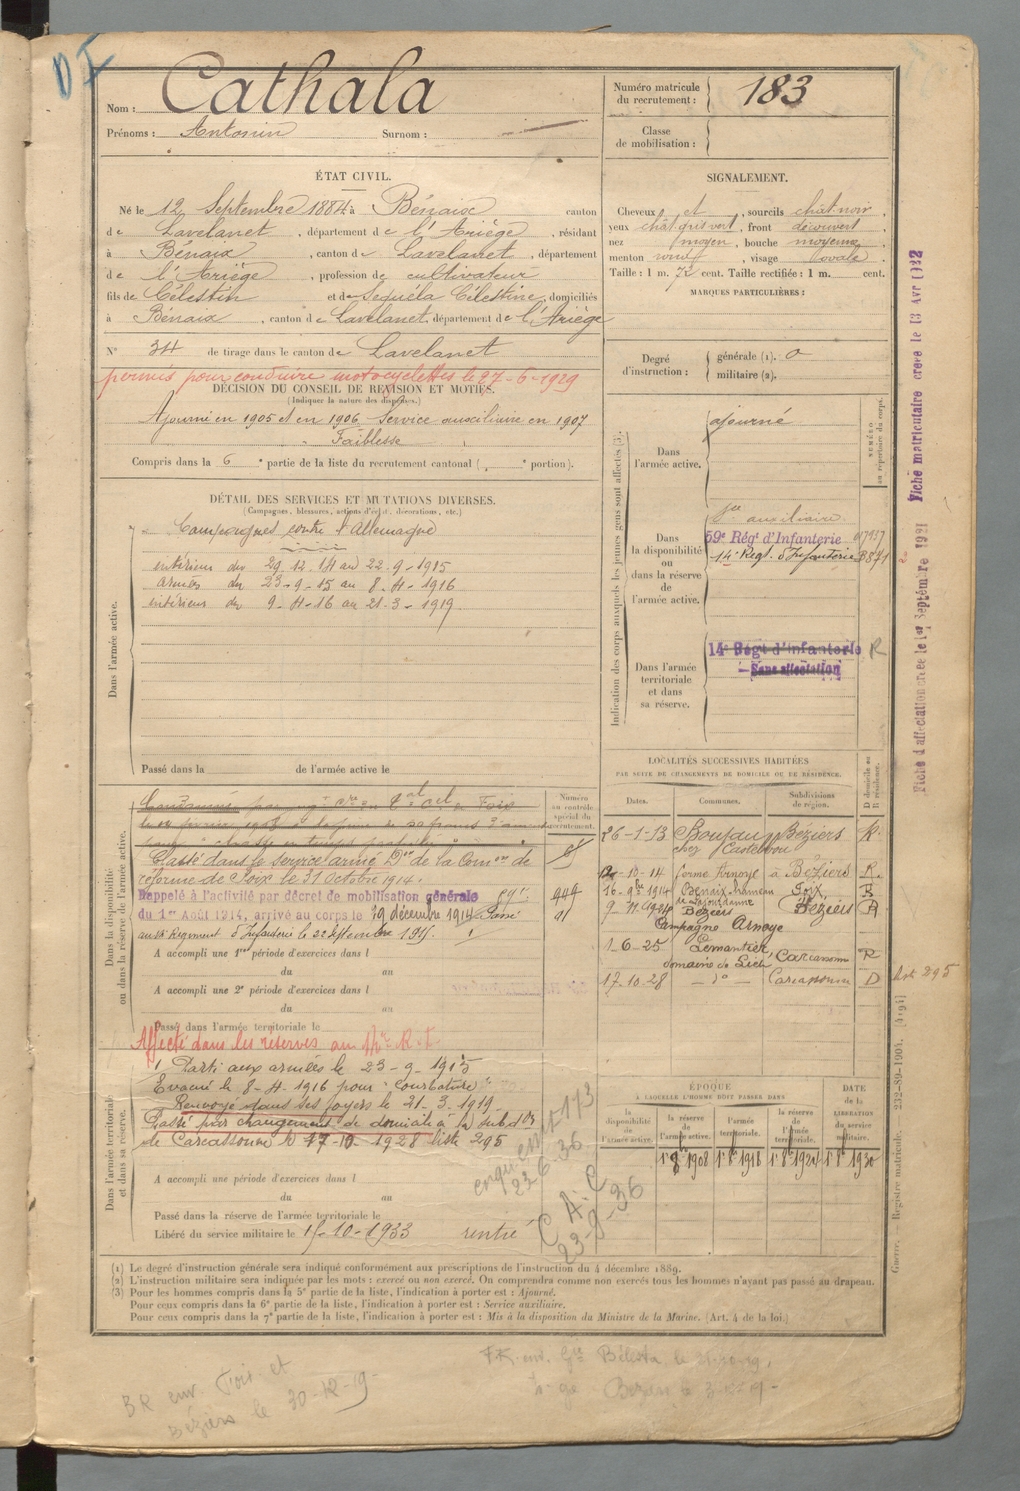 Nom : Cathala
Prénoms : Antonin Surnom :
Numéro matricule
du recrutement : 183
Classe
de mobilisation :
ÉTAT CIVIL.
Né le 12 Septembre 1884 à Bénaix canton
de Lavelanet, département de l'Ariège, résidant
à Bénaix, canton de Lavelanet, département
de l'Ariège, profession de cultivateur
fils de Célestin et de Séguéla Célestine, domiciliés
à Bénaix, canton de Lavelanet, département de l'Ariège
N° 34 de tirage dans le canton de Lavelanet
permis pour conduire motocyclettes le 27-6-1929
DÉCISION DU CONSEIL DE RÉVISION ET MOTIFS.
(Indiquer la nature des dispenses.)
Ajourné en 1905 et en 1906 Service auxiliaire en 1907
Faiblesse
Compris dans la 6e partie de la liste du recrutement cantonal ( e portion).
SIGNALEMENT.
Cheveux et, sourcils chât. noir,
yeux chât. gris vert, front découvert,
nez moyen, bouche moyenne,
menton rond, visage ovale,
Taille : 1 m. 72 cent. Taille rectifiée : 1 m. cent.
MARQUES PARTICULIÈRES :
Degré
d'instruction :
générale (1). 0
militaire (2).
Indication des corps auxquels les jeunes gens sont affectés (3).
NUMÉRO
au répertoire du corps.
Dans
l'armée active.
ajourné
Dans
la disponibilité
ou
dans la réserve
de
l'armée active.
auxiliaire
59e Régt d'Infanterie
14e Régt. d'Infanterie
Dans l'armée
territoriale
et dans
sa réserve.
14e Régt d'Infanterie R
Sans affectation
DÉTAIL DES SERVICES ET MUTATIONS DIVERSES.
(Campagnes, blessures, actions d'éclat, décorations, etc.)
Dans l'armée active.
Campagnes contre l'Allemagne
intérieur du 29.12.14 au 22-9-1915
armées du 23-9-15 au 8-4-1916
intérieur du 9-4-16 au 21-3-1919
Passé dans la de l'armée active le
Dans la disponibilité
ou dans la réserve de l'armée active.
Numéro
au contrôle
spécial du
recrutement.
Classé dans le service armé Don de la Comon de
réforme de Foix le 31 Octobre 1914.
Rappelé à l'activité par décret de mobilisation générale
du 1er Août 1914, arrivé au corps le 29 décembre 1914 Passé
au 14e Régiment d'Infanterie le 22 septembre 1915.
A accompli une 1re période d'exercices dans l
du au
A accompli une 2e période d'exercices dans l
du au
Passé dans l'armée territoriale le
Affecté dans les réserves au 14e R.I.
Dans l'armée territoriale
et dans sa réserve.
Parti aux armées le 23-9-1915
Evacué le 8-4-1916 pour "Courbature"
Renvoyé dans ses foyers le 21-3-1919
Passé par changement de domicile à la subdon
de Carcassonne le 17-10-1928 liste 295
A accompli une période d'exercices dans l
du au
Passé dans la réserve de l'armée territoriale le
Libéré du service militaire le 15-10-1933 rentré
LOCALITÉS SUCCESSIVES HABITÉES
PAR SUITE DE CHANGEMENTS DE DOMICILE OU DE RÉSIDENCE.
Dates. Communes. Subdivisions
de région. D domicile ou
R résidence.
26-1-13 Boujan Béziers R.
chez Castelbou
10-14 ferme Arnoye à Béziers R.
16-9bre 1914 Benaix hameau Foix R
9-11-1924 Béziers Béziers R
Campagne Arnoye
1-6-25 Carcassonne R
domaine de
17-10-28 — do — Carcassonne D
liste 295
ÉPOQUE
À LAQUELLE L'HOMME DOIT PASSER DANS
la
disponibilité
de
l'armée active.
la réserve
de
l'armée active.
l'armée
territoriale.
la réserve
de
l'armée
territoriale.
DATE
de la
LIBÉRATION
du
service
militaire.
1er 8bre 1908 1er 8bre 1918 1er 8bre 1924 1er 8bre 1930
23-6-36
C.A.C
23-9-36
(1) Le degré d'instruction générale sera indiqué conformément aux prescriptions de l'instruction du 4 décembre 1889.
(2) L'instruction militaire sera indiquée par les mots : exercé ou non exercé. On comprendra comme non exercés tous les hommes n'ayant pas passé au drapeau.
(3) Pour les hommes compris dans la 5e partie de la liste, l'indication à porter est : Ajourné.
Pour ceux compris dans la 6e partie de la liste, l'indication à porter est : Service auxiliaire.
Pour ceux compris dans la 7e partie de la liste, l'indication à porter est : Mis à la disposition du Ministre de la Marine. (Art. 4 de la loi.)
BR env. Foix et
Béziers le 30-12-19-
Guerre. — Registre matricule. 232-89-1904. [4194]
Fiche d'affectation créée le 1er Septembre 1921 Fiche matriculaire créée le 13 Avr 1922